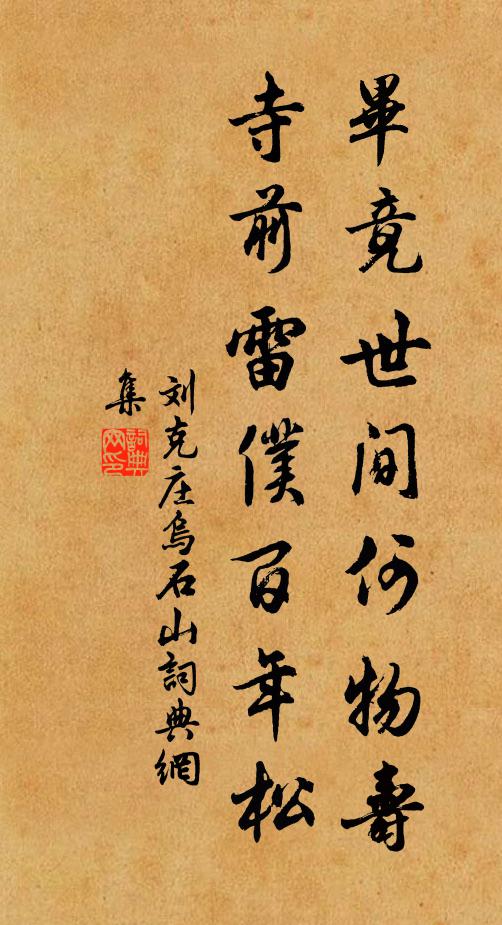 畢竟世間何物壽
寺前雷僕百年松
刘克庄烏石山詞典網
集
詞典網印